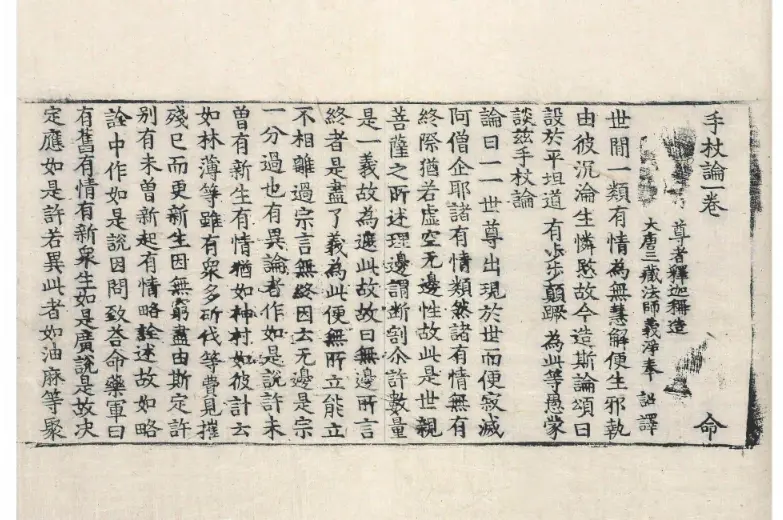 手杖論一卷　命
尊者釋迦稱造
大唐三藏法師義淨奉　詔譯
世間一類有情為無慧解便生邪執
由彼沉淪生憐愍故今造斯論頌曰
設於平坦道　有步步顛蹶　為此等愚蒙
談茲手杖論
論曰一一世尊出現於世而便寂滅
阿僧企耶諸有情類然諸有情無有
終際猶若虛空无邊性故此是世親
菩薩之所述理邊謂斷割介許數量
是一義故為遮此故故曰無邊所言
終者是盡了義為此便無所立能立
不相離過宗言無終因云无邊是宗
一分過也有異論者作如是說許未
曾有新生有情猶如神村如彼計云
如林薄等雖有衆多斫伐等費見摧
殘已而更新生因無窮盡由斯定許
別有未曾新起有情略詮述故如略
詮中作如是說因問致荅命藥軍曰
有舊有情有新衆生如是廣說是故决
定應如是許若異此者如油麻等聚